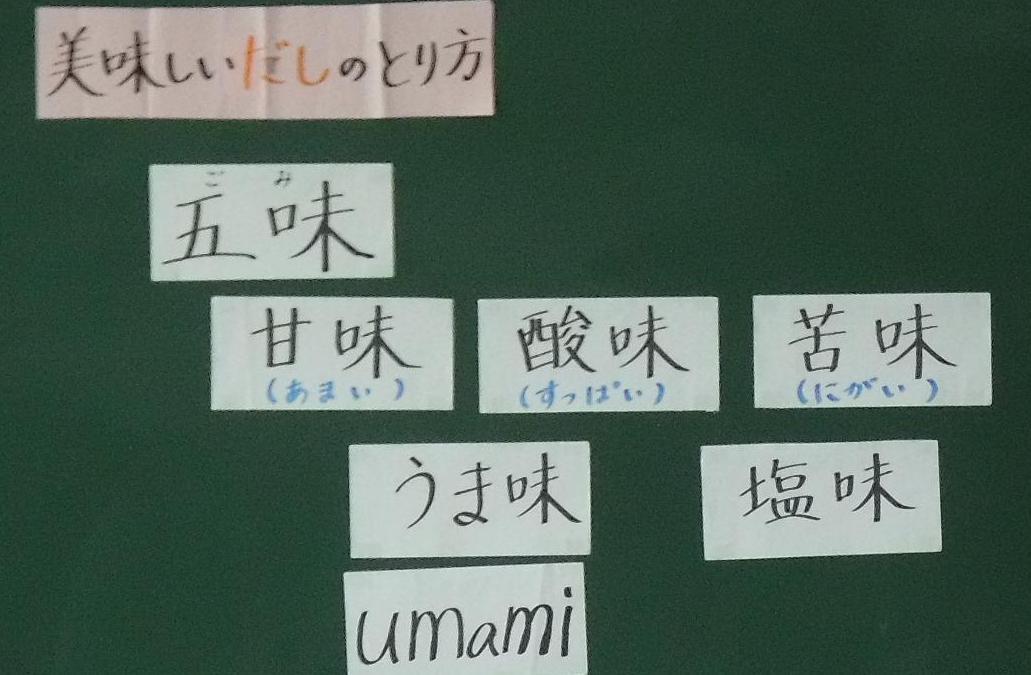 美味しいだしのとり方
ごみ
五味
甘味 酸味 苦味
(あまい) (すっぱい) (にがい)
うま味 塩味
umami